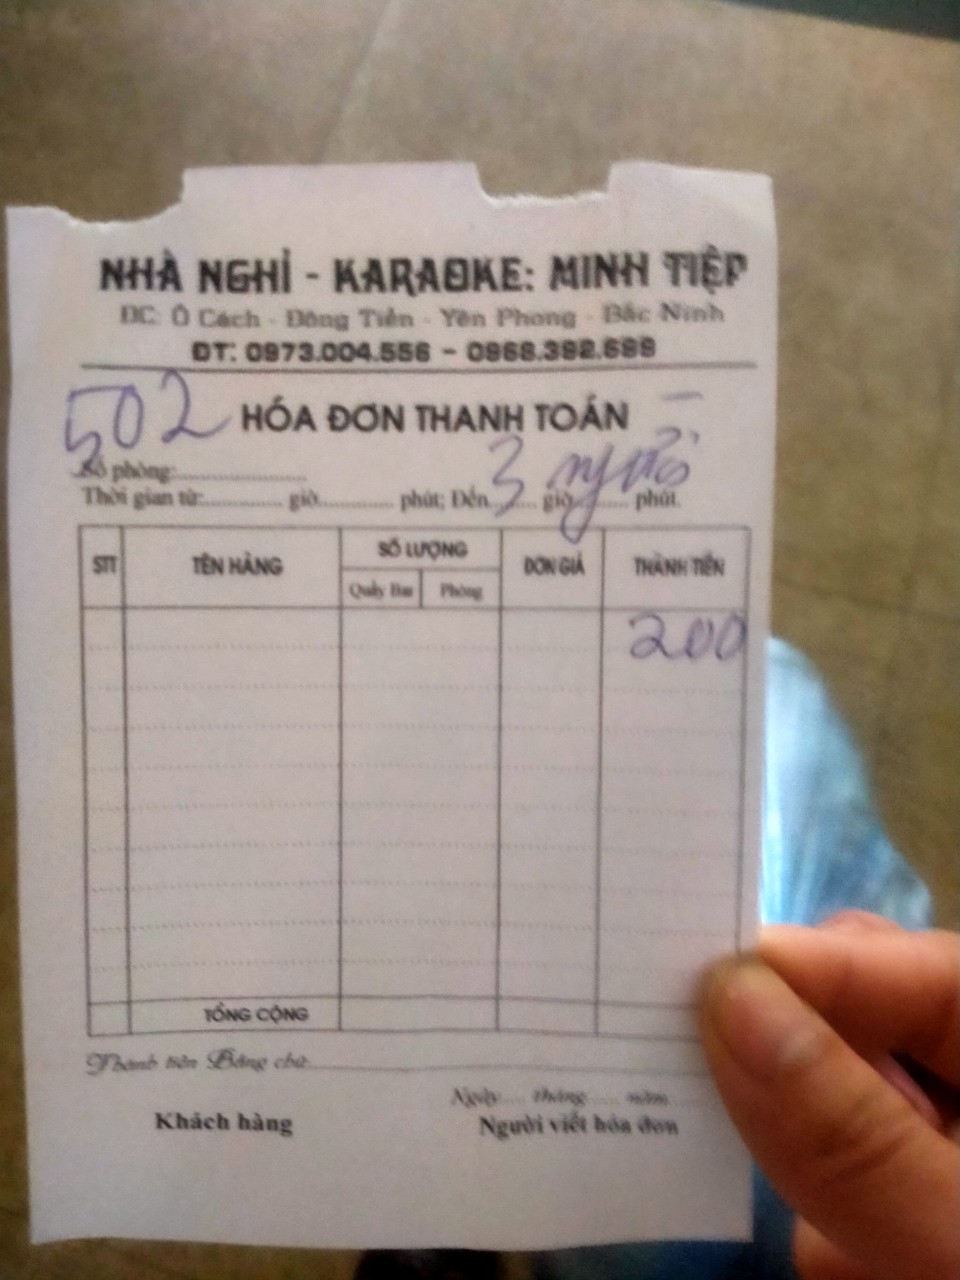 NHÀ NGHỈ - KARAOKE: MINH TIỆP
ĐC: Ô Cách - Đông Tiến - Yên Phong - Bắc Ninh
ĐT: 0973.004.556 - 0968.392.699
502 HÓA ĐƠN THANH TOÁN
Số phòng:
3 người
Thời gian từ: giờ phút; Đến giờ phút.
STT TÊN HÀNG SỐ LƯỢNG ĐƠN GIÁ THÀNH TIỀN
Quầy Bar Phòng
200
TỔNG CỘNG
Thành tiền Bằng chữ
Ngày tháng năm
Khách hàng Người viết hóa đơn